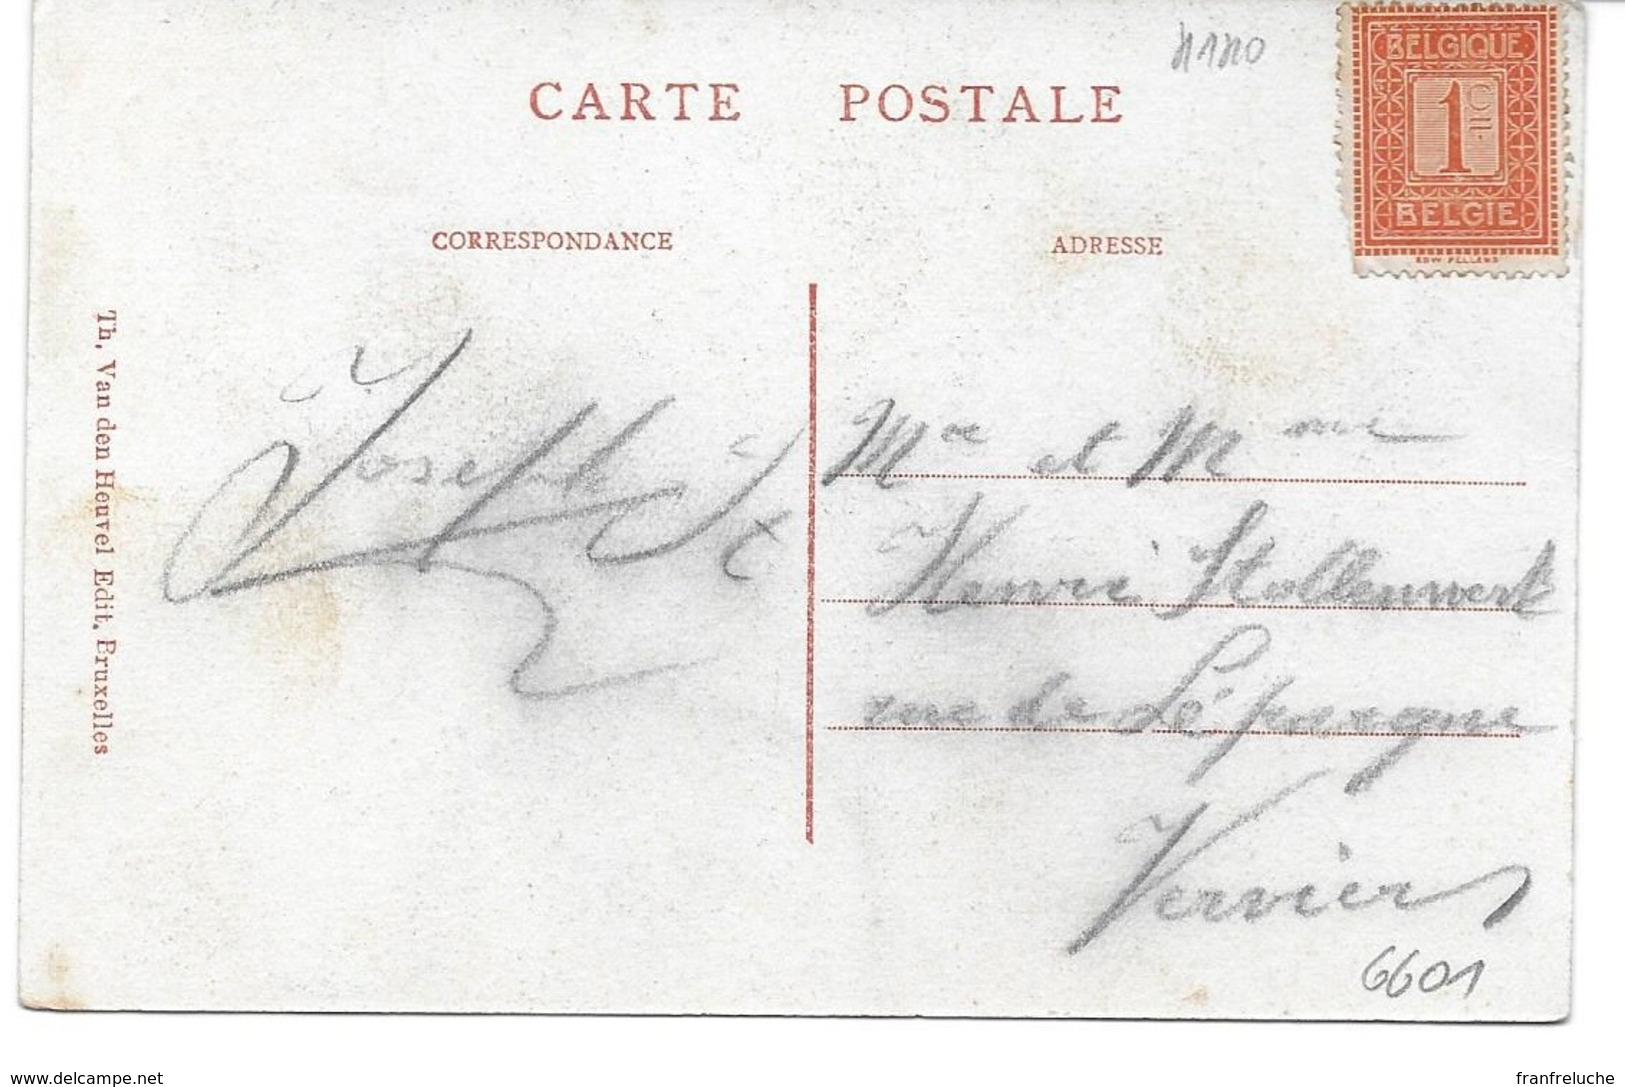 BELGIQUE
1 CE.
BELGIE
CARTE POSTALE
CORRESPONDANCE
ADRESSE
Th. Van den Heuvel Edit. Bruxelles
Joseph St
Mr et Mme
Henri Stollenwerk
rue de Lépargne
Verviers
6601
www.delcampe.net
franfreluche